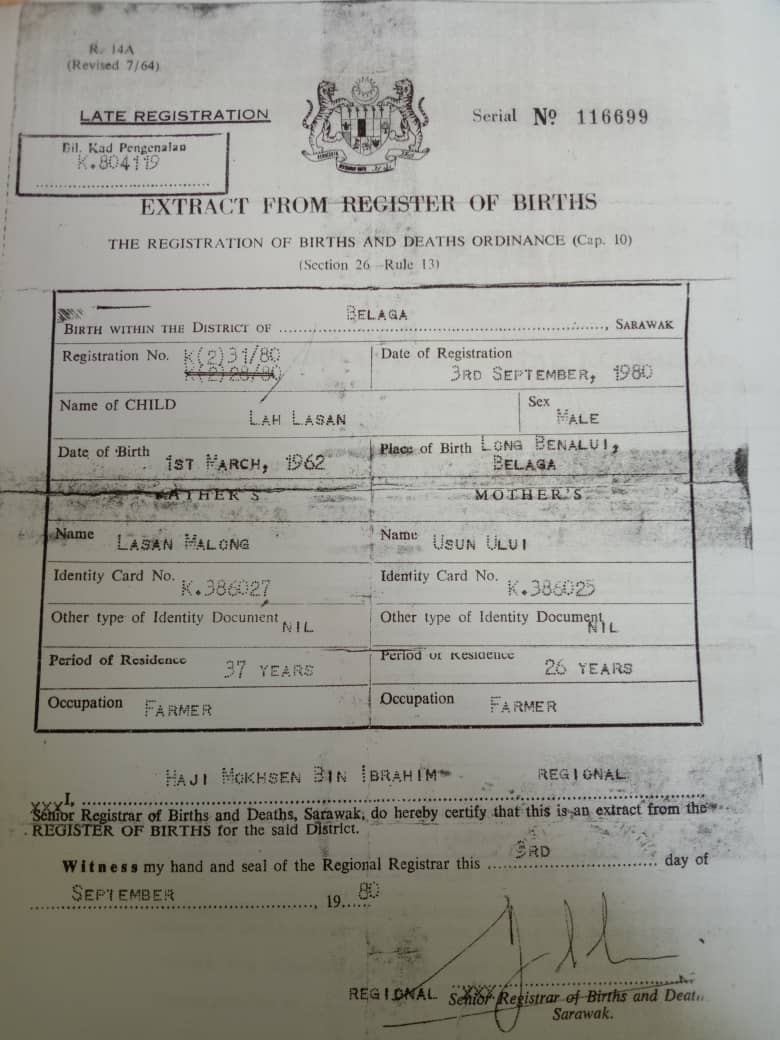 R. 14A
(Revised 7/64)
LATE REGISTRATION
Serial Nº 116699
Bil. Kad Pengenalan
K.804119
EXTRACT FROM REGISTER OF BIRTHS
THE REGISTRATION OF BIRTHS AND DEATHS ORDINANCE (Cap. 10)
(Section 26—Rule 13)
BIRTH WITHIN THE DISTRICT OF BELAGA, SARAWAK
Registration No. K(2)31/80
K(2)28/80
Date of Registration
3RD SEPTEMBER, 1980
Name of CHILD
LAH LASAN
Sex
MALE
Date of Birth
1ST MARCH, 1962
Place of Birth LONG BENALUI,
BELAGA
FATHER'S
MOTHER'S
Name LASAN MALONG
Name USUN ULUI
Identity Card No. K.386027
Identity Card No. K.386025
Other type of Identity Document NIL
Other type of Identity Document NIL
Period of Residence 37 YEARS
Period of Residence 26 YEARS
Occupation FARMER
Occupation FARMER
HAJI MOKHSEN BIN IBRAHIM REGIONAL
XXX I,
Senior Registrar of Births and Deaths, Sarawak, do hereby certify that this is an extract from the
REGISTER OF BIRTHS for the said District.
Witness my hand and seal of the Regional Registrar this 3RD day of
SEPTEMBER, 1980
REGIONAL Senior Registrar of Births and Deat
Sarawak.